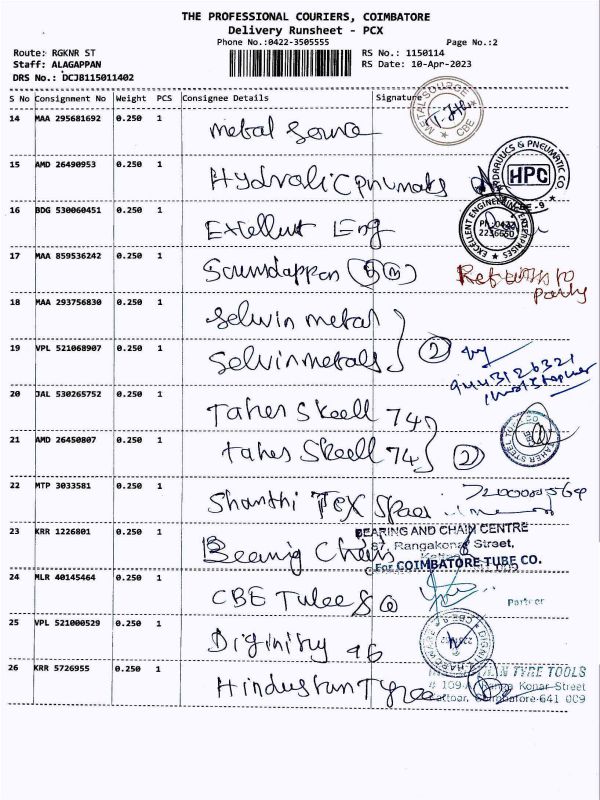 THE PROFESSIONAL COURIERS, COIMBATORE
Delivery Runsheet - PCX
Phone No.:0422-3505555 Page No.:2
Route: RGKNR ST RS No.: 1150114
Staff: ALAGAPPAN RS Date: 10-Apr-2023
DRS No.: DCJB115011402
S No Consignment No Weight PCS Consignee Details Signature
14 MAA 295681692 0.250 1 metal source METAL SOURCE CBE
15 AMD 26490953 0.250 1 HYDRAULICS & PNEUMATIC CO HPC
16 BDG 530060451 0.250 1 Excellent Eng EXCELLENT ENGINEERING ENTERPRISES PH:0422 2236650
17 MAA 859536242 0.250 1 Return to party
18 MAA 293756830 0.250 1 Selvin metal
19 VPL 521068907 0.250 1 Selvin metals 2 9443126321
20 JAL 530265752 0.250 1 Taher Skeell 74
21 AMD 26450807 0.250 1 taher Skeell 74 2 TAHER STEEL
22 MTP 3033581 0.250 1 Shanthi TEX
23 KRR 1226801 0.250 1 BEARING AND CHAIN CENTRE
87, Rangakonar Street,
For COIMBATORE TUBE CO.
24 MLR 40145464 0.250 1 CBE Tube Partner
25 VPL 521000529 0.250 1 96
26 KRR 5726955 0.250 1 Hindustan Tyre TYRE TOOLS
# 109 Konar Street
641 009